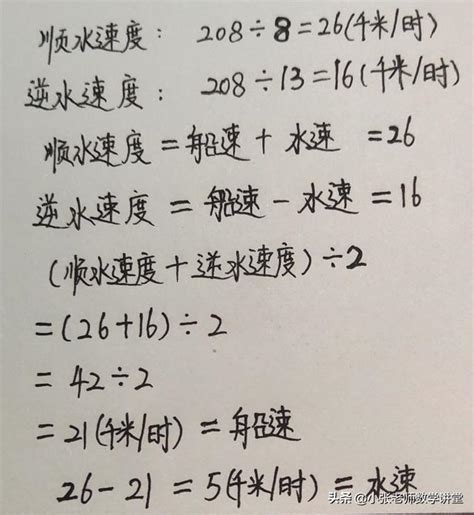 顺水速度： 208÷8=26(千米/时)
逆水速度： 208÷13=16(千米/时)
顺水速度=船速+水速 =26
逆水速度=船速-水速=16
(顺水速度+逆水速度)÷2
=(26+16)÷2
=42÷2
=21(千米/时)=船速
26-21=5(千米/时)=水速
头条 @小张老师数学讲堂